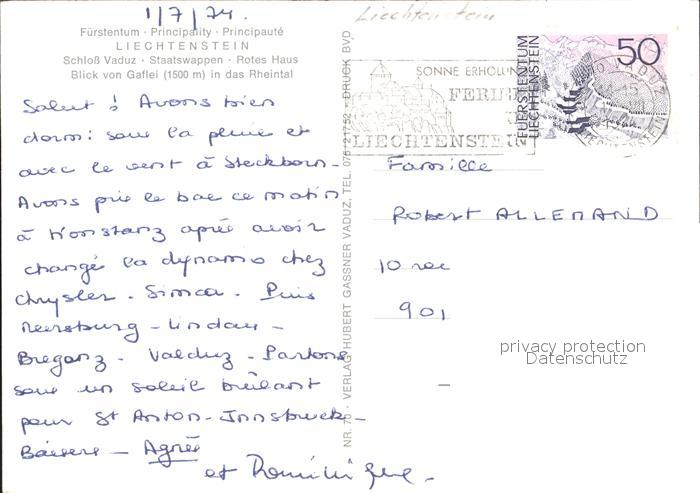 1/7/74.
Liechtenstein
Fürstentum · Principality · Principauté
LIECHTENSTEIN
Schloß Vaduz · Staatswappen · Rotes Haus
Blick von Gaflei (1500 m) in das Rheintal
Salut ! Avons bien
dormi sous la pluie et
avec le vent à Steckborn.
Avons pris le bac ce matin
à Konstanz après avoir
changé la dynamo chez
Chrysler. Simca. Puis
Meersburg - Lindau -
Bregenz. Valduz - Partons
sous un soleil brûlant
pour St Anton - Innsbruck -
Baisers - Agnès
et Dominique.
NR. 70 · VERLAG HUBERT GASSNER VADUZ, TEL. 075/21752 · DRUCK BVD
SONNE ERHOLUNG
FERIEN
LIECHTENSTEIN
FÜRSTENTUM
LIECHTENSTEIN
50
VADUZ
LIECHTENSTEIN
Famille
Robert ALLEMAND
10 rue
901
privacy protection
Datenschutz